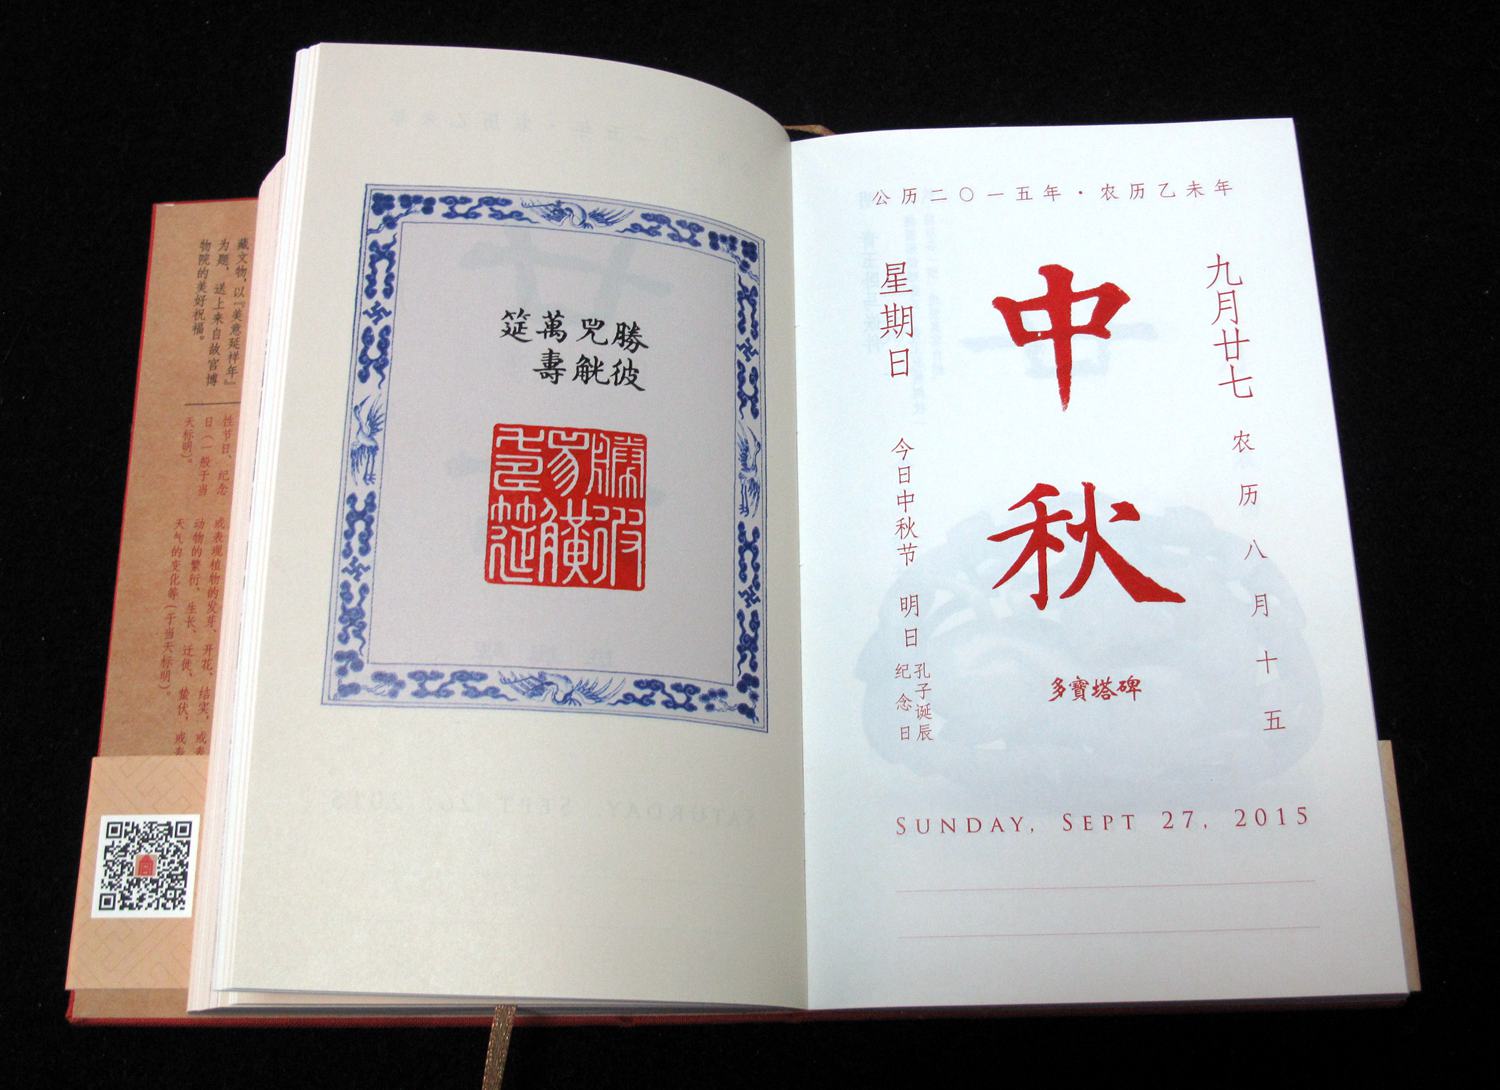 藏文物，以『美意延祥年』
为题，送上来自故宫博
物院的美好祝福。
性节日、纪念
日（一般于当
天标明）。
或表现植物的发芽、开花、结实，或表
动物的繁衍、生长、迁徙、蛰伏，或表
天气的变化等（于当天标明）。
勝彼
兕觥
萬壽
筵
公历二〇一五年·农历乙未年
九月廿七
农历八月十五
中秋
多寶塔碑
星期日
今日中秋节
明日
孔子诞辰
纪念日
SUNDAY, SEPT 27, 2015